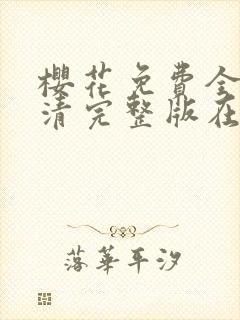 櫻花免費全
清完整版在
落華平汐